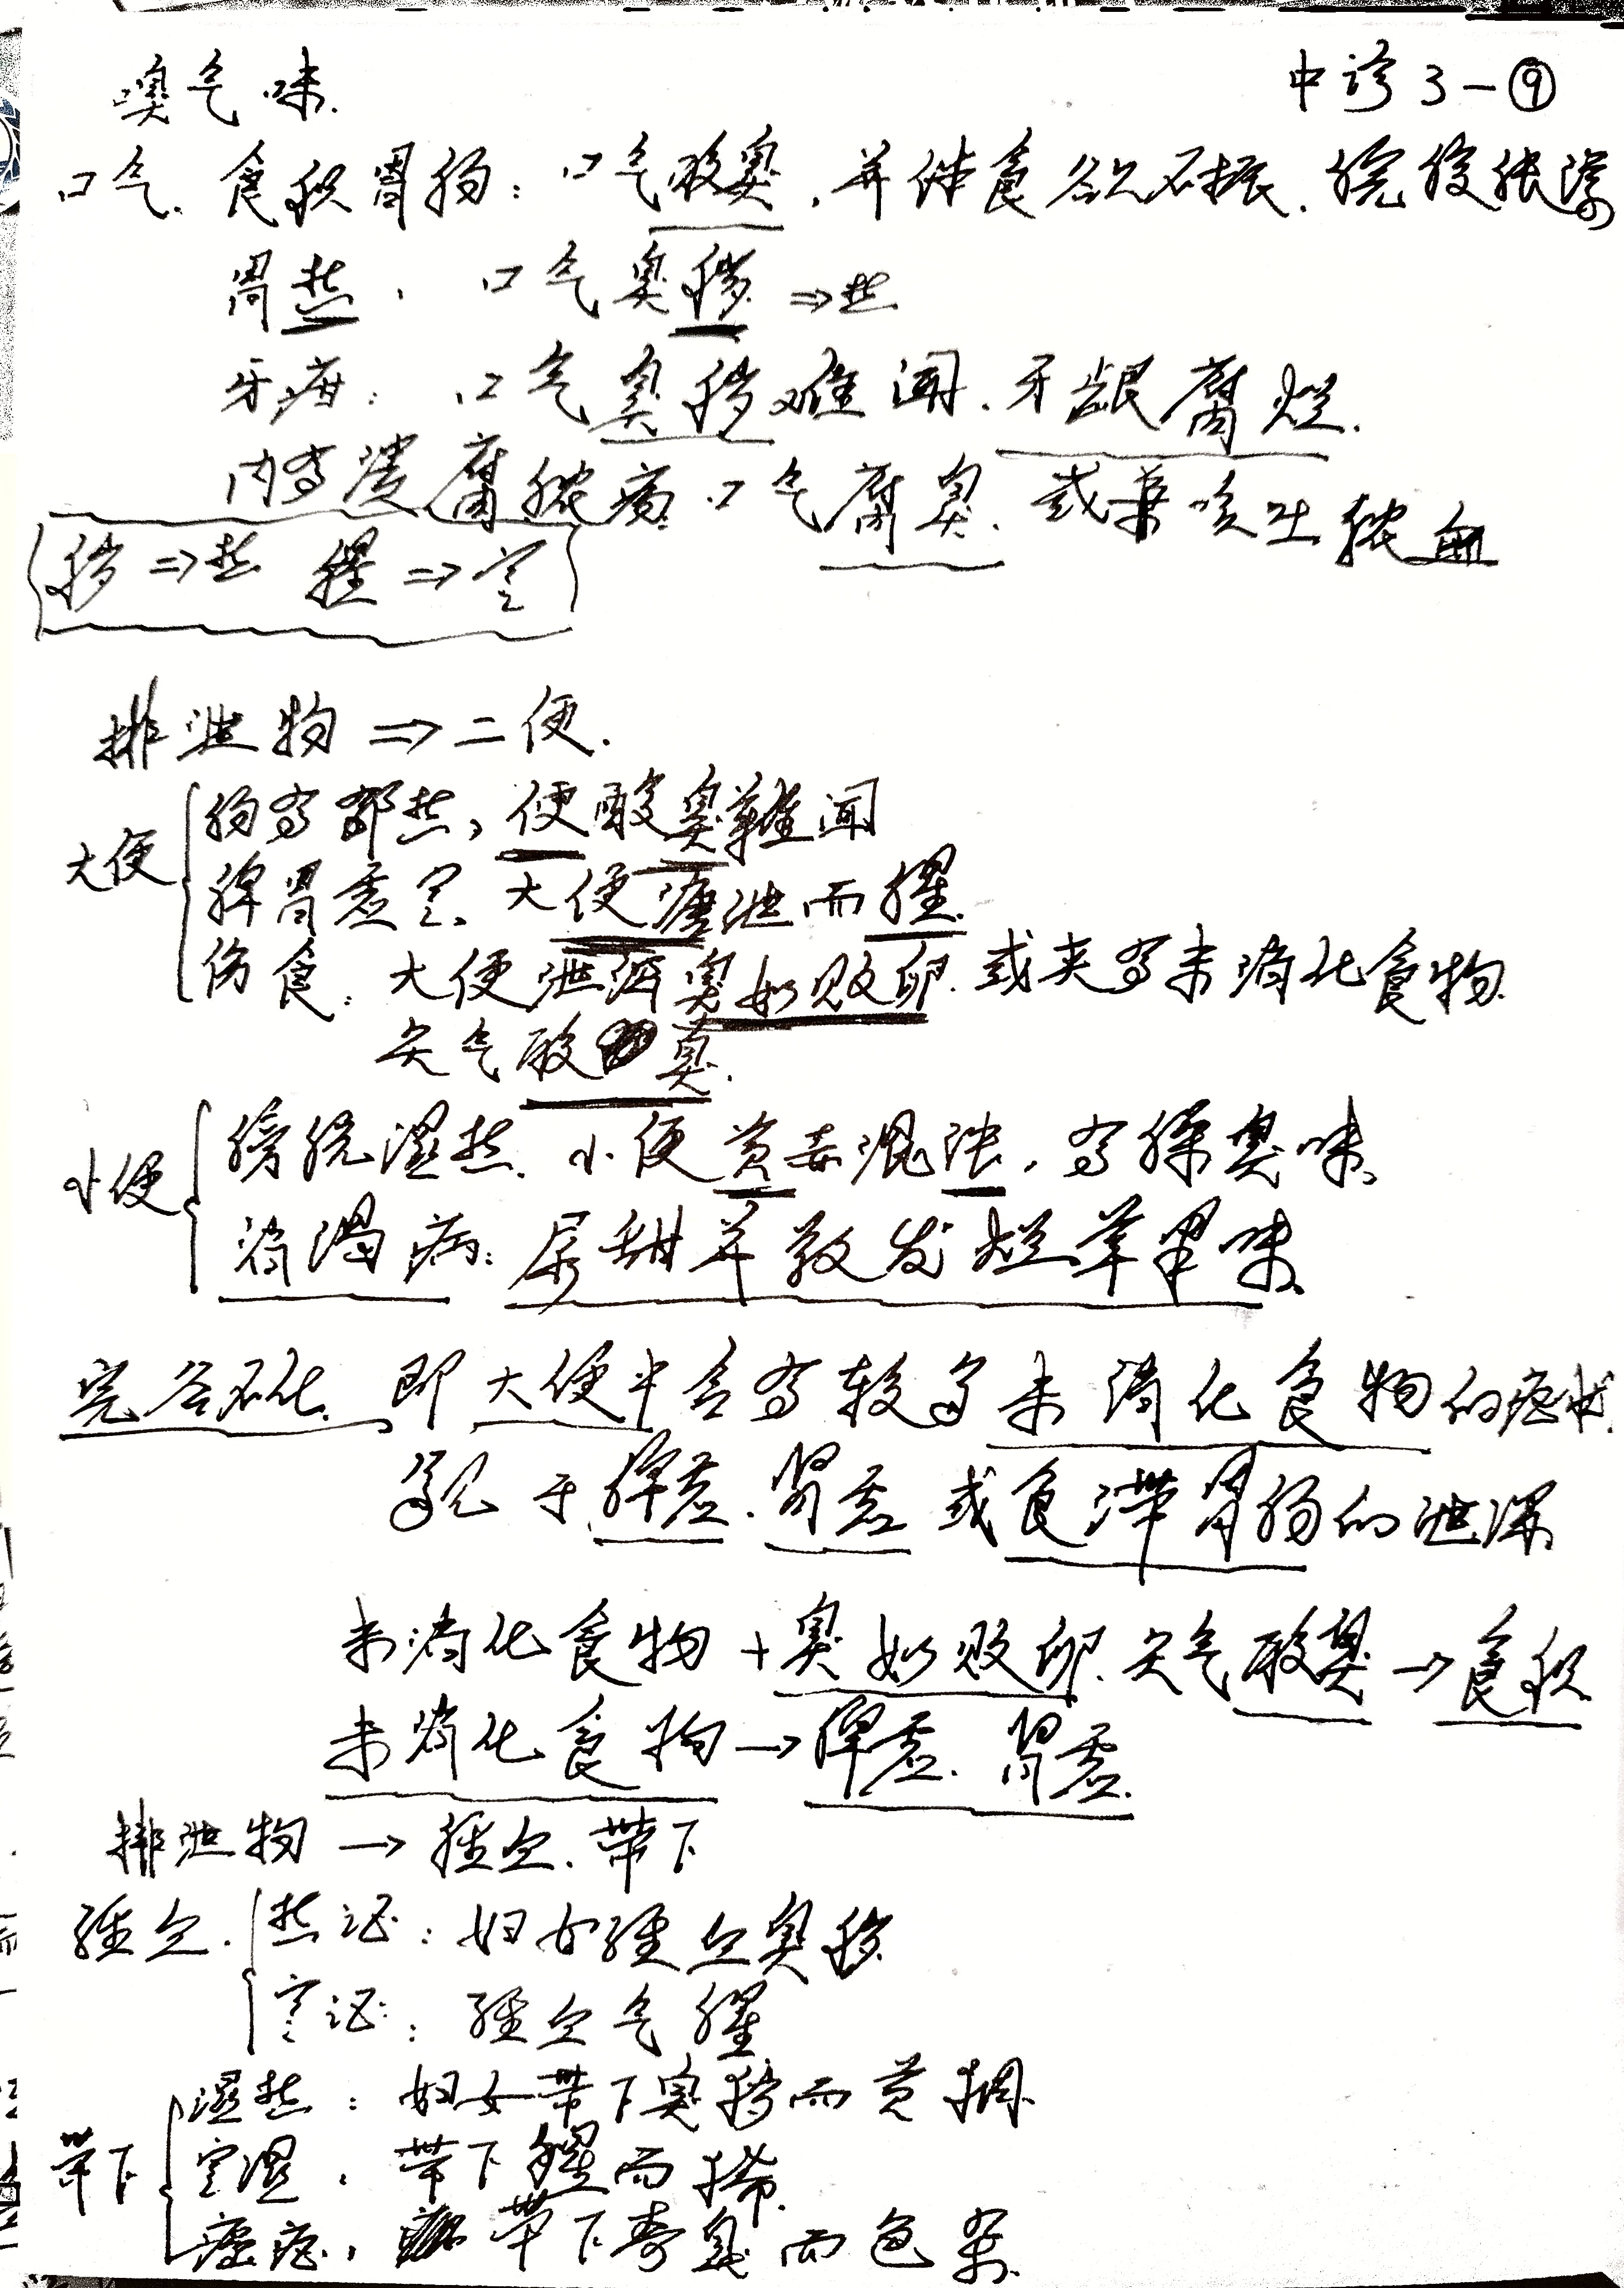 嗅气味. 中诊3-⑨
口气. 食积胃肠: 口气酸臭, 并伴食欲不振. 脘腹胀满
胃热, 口气臭秽 ⇒热
牙疳: 口气臭秽难闻. 牙龈腐烂.
内有溃腐脓疡 口气腐臭. 或兼咳吐脓血
{秽⇒热 腥⇒寒}
排泄物⇒二便.
大便 肠有郁热, 便酸臭難闻
脾胃虚寒、大便溏泄而腥.
伤食: 大便泄泻臭如败卵. 或夹有未消化食物.
矢气酸臭.
小便 膀胱湿热. 小便黄赤混浊, 有臊臭味、
消渴病: 尿甜并散发烂苹果味
完谷不化. 即大便中含有较多未消化食物的症状.
多见于脾虚. 肾虚 或食滞胃肠的泄泻
未消化食物+臭如败卵. 矢气酸臭→食积
未消化食物→脾虚. 肾虚.
排泄物→经血. 带下
经血. 热证: 妇女经血臭秽
寒证: 经血气腥
带下 湿热: 妇女带下臭秽而黄稠.
寒湿, 带下腥而稀.
癌症, 带下奇臭而色杂.